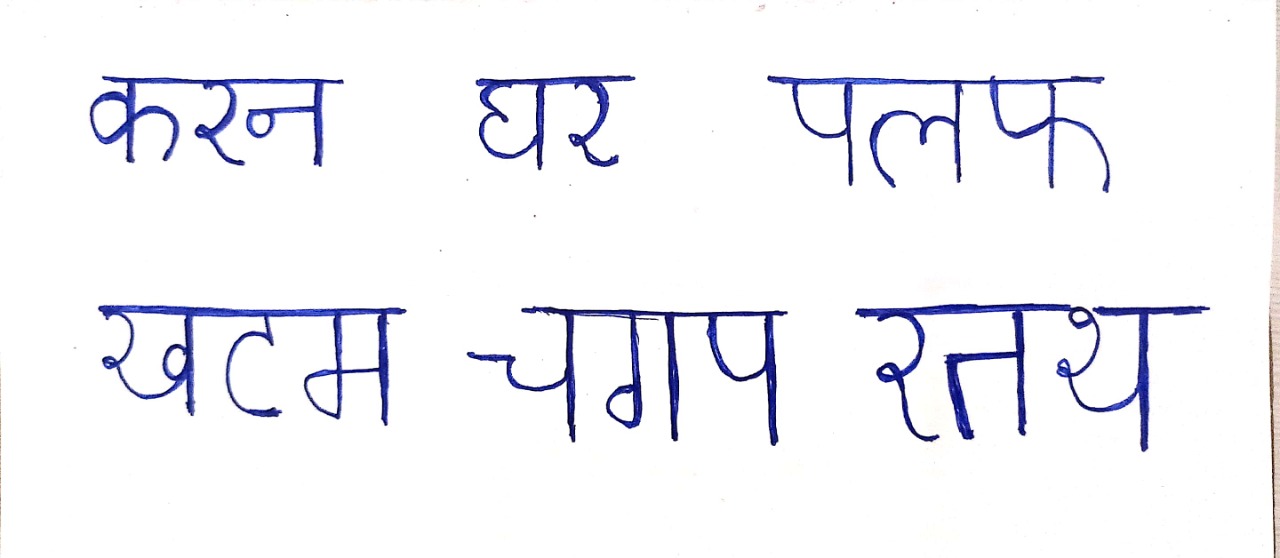 करन घर पलफ
खटम चगप रतथ